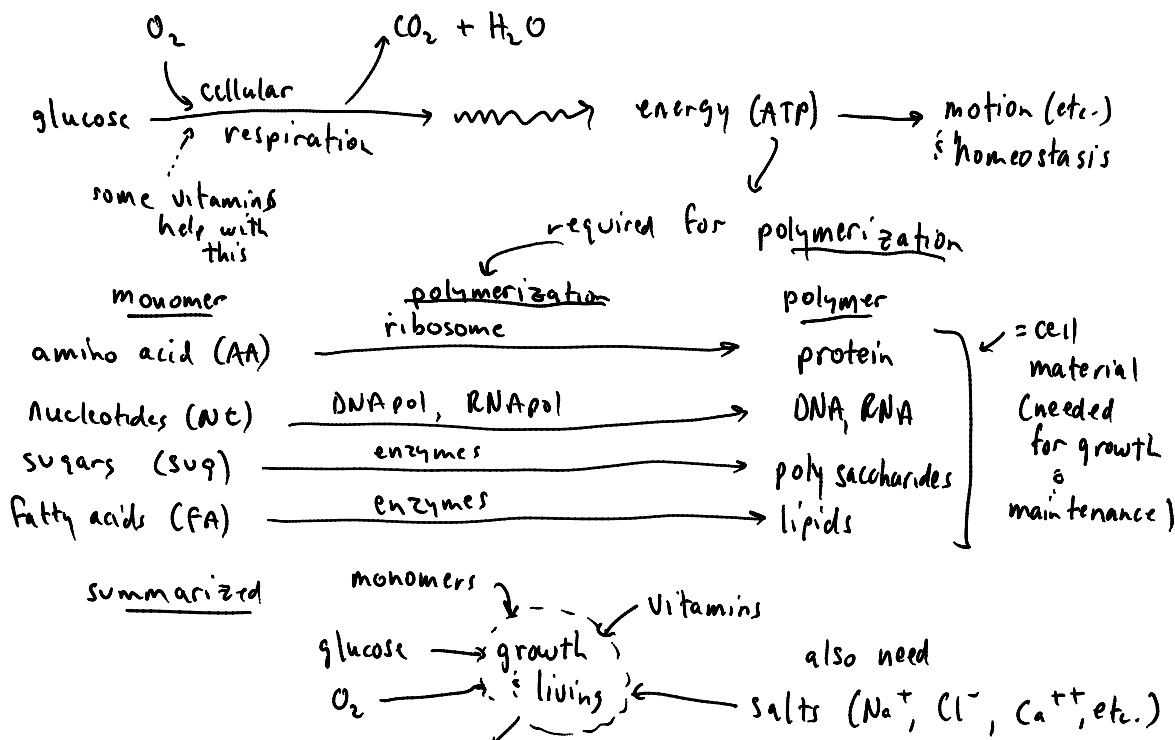 O₂ CO₂ + H₂O
glucose cellular respiration energy (ATP) motion (etc.)
& homeostasis
some vitamins
help with
this
required for polymerization
monomer polymerization polymer
amino acid (AA) ribosome protein
nucleotides (Nt) DNApol, RNApol DNA, RNA
sugars (sug) enzymes polysaccharides
fatty acids (FA) enzymes lipids
= cell
material
(needed
for growth
&
maintenance)
summarized
monomers vitamins
glucose growth
O₂ & living
also need
salts (Na⁺, Cl⁻, Ca⁺⁺, etc.)